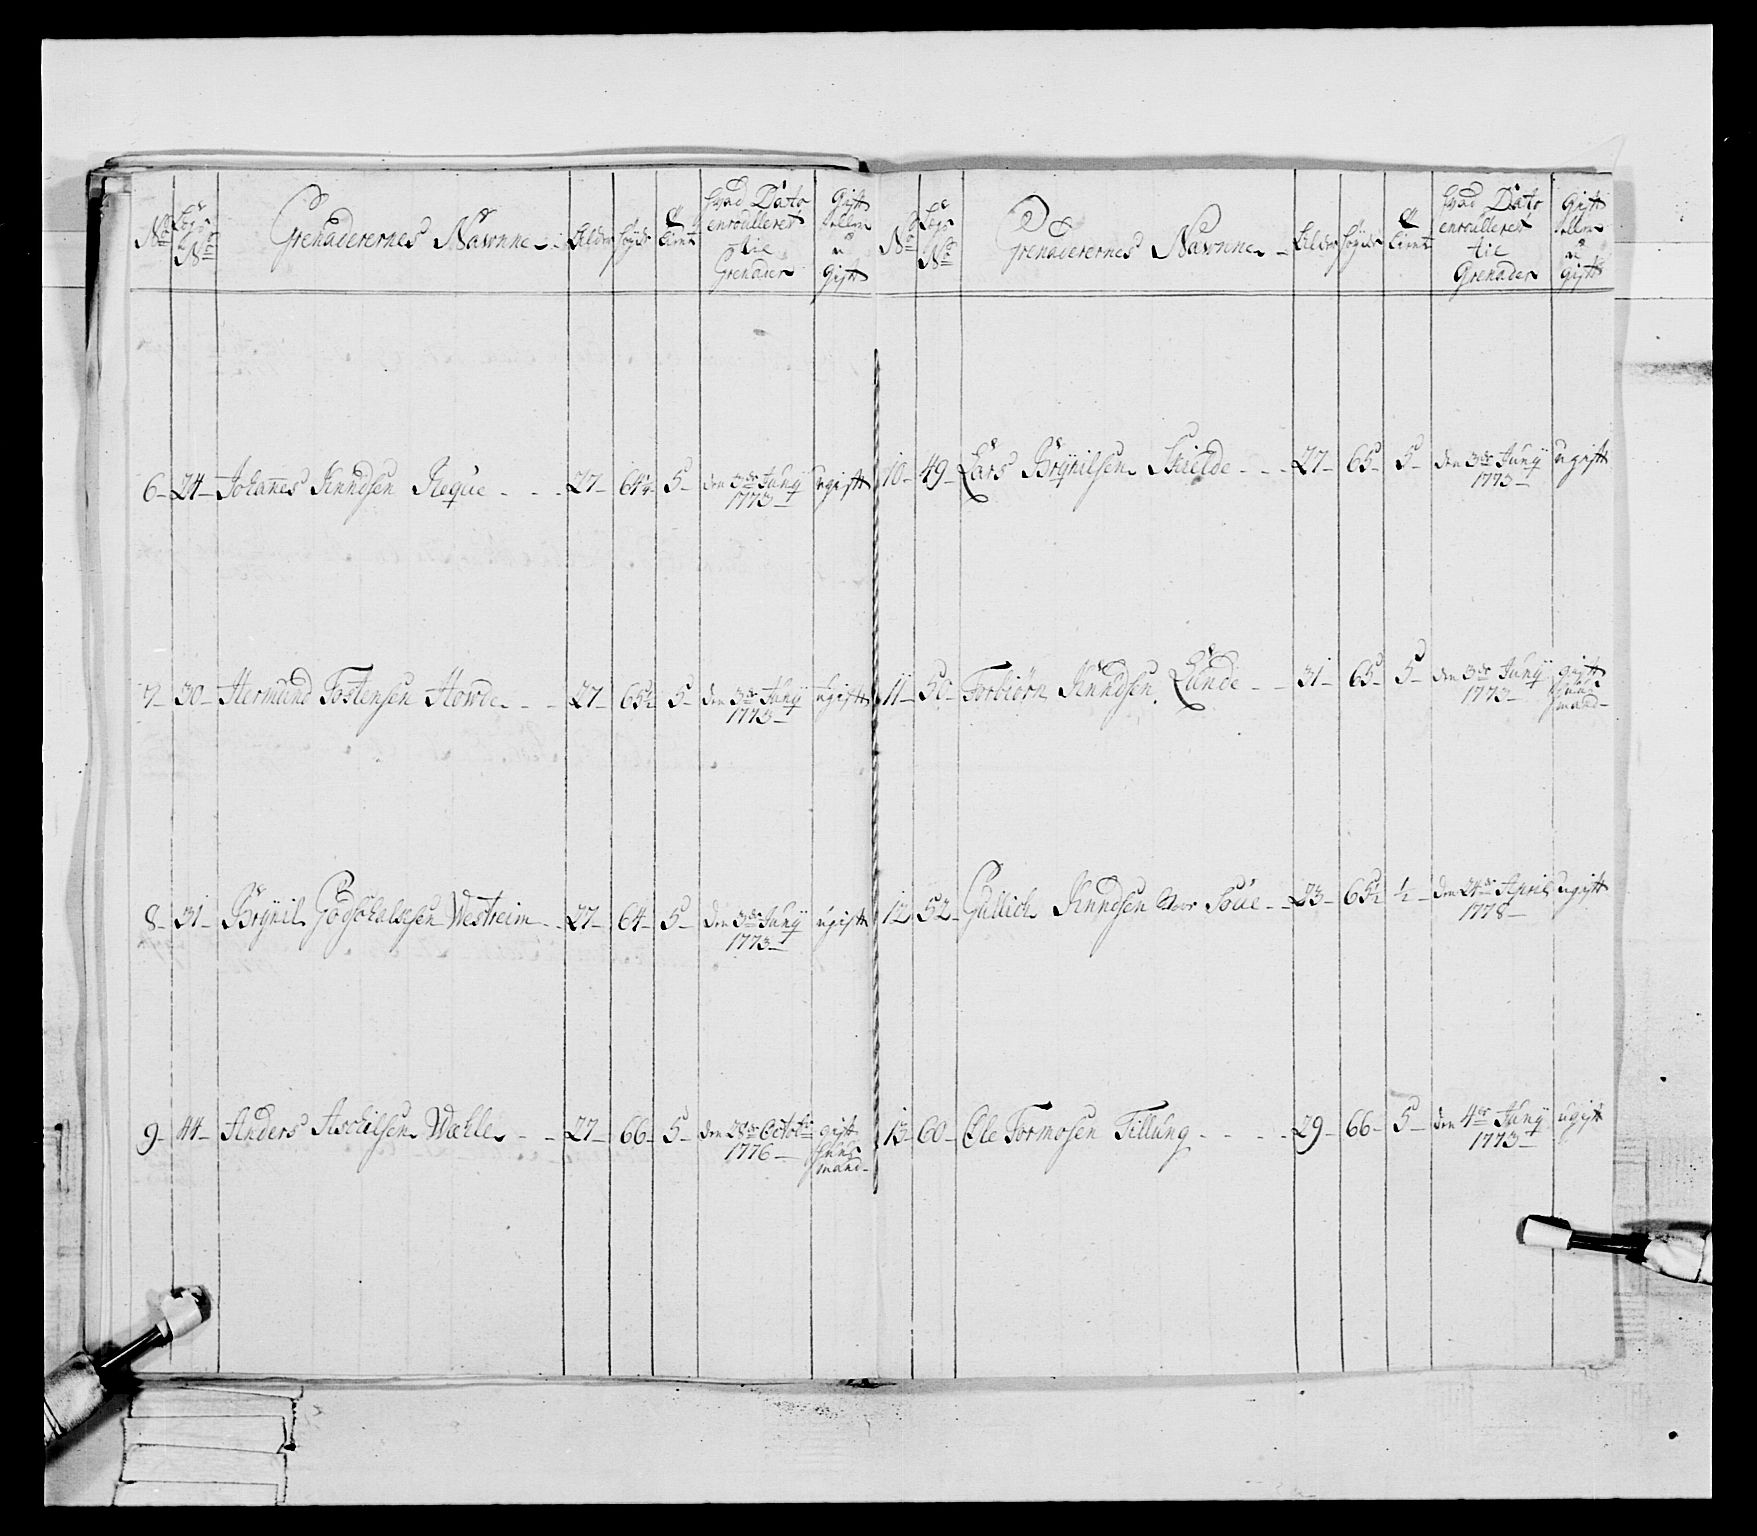 No
Lægs No
Grenaderernes Navnne
Alder
Høyde
Tient
hvad Dato enroulleret til Grenader
Gift eller u Gift
6 - 24 - Johannes Knudsen Reque - - - 27 - 64 1/4 5 - den 3de Juny 1773 - ugift
7 - 30 - Hermund Tostensen Howde - - 27 - 65 1/2 5 - den 3de Juny 1773 - ugift
8 - 31 - Brynil Godskalcksen Westreim - - 27 - 64 - 5 - den 3de Juny 1773 - ugift
9 - 44 - Anders Aschilsen Wæhle - - 27 - 66 - 5 - den 28de Octobr 1776 - gift huusmand -
No
Lægs No
Grenaderernes Navnne -
Alder
Høyde
Tient
hvad Dato enroulleret til Grenader
Gift eller u Gift
10 - 49 - Lars Brynilsen Skielde - - - 27 - 65 - 5 - den 3de Juny 1773 - ugift
11 - 50 - Torbiørn Knudsen Lunde - - 31 - 65 - 5 - den 3de Juny 1773 - gift huusmand -
12 - 52 - Gullich Knudsen Soue - - 23 - 65 1/2 1/2 - den 24de April 1778 - ugift
13 - 60 - Ole Tormosen Tillung - - - - 29 - 66 - 5 - den 4de Juny 1773 - ugift